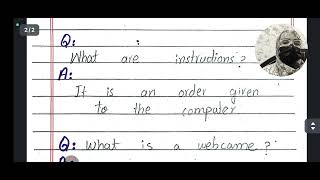 2/2
Q: :
What are instructions?
A:
It is an order given
to the computer.
Q: What is a webcame?